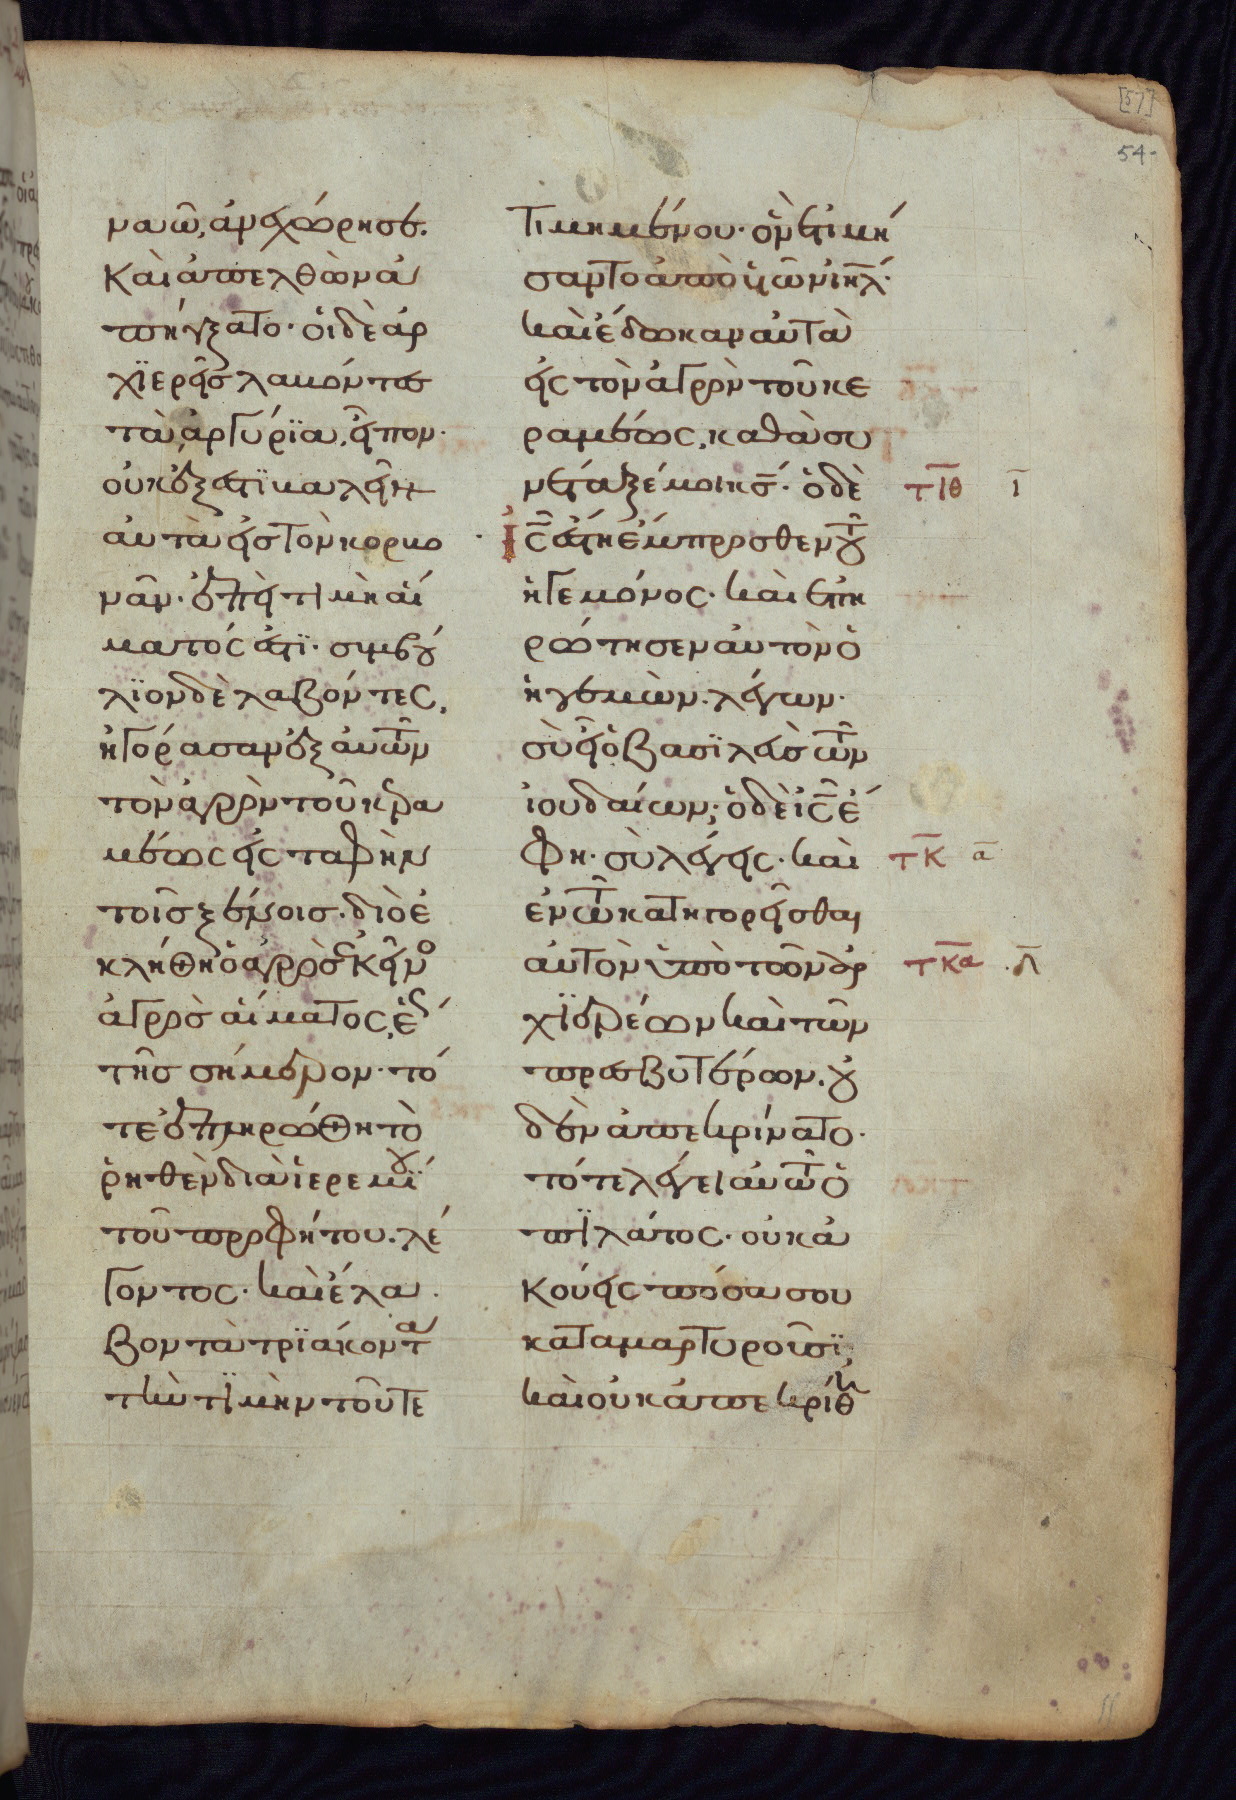 [57]
54-
ναῶ, ἀνεχώρησε.
Καὶ ἀπελθὼν ἀ
πήγξατο· οἱ δὲ ἀρ
χϊερεῖς λαμόντες
τὰ ἀργύρϊα, εἶπον·
οὐκ ἔξεστϊ καλεῖν
αὐτὰ εἰς τὸν κορμο
νᾶν· ἐπεὶ τιμὴ αἵ
ματός ἐστϊ· συμβȣ́
λϊον δὲ λαβόντες,
ἠγόρασαν ἐξ αυτῶν
τὸν ἀγρὸν τοῦ κερα
μέως εἰς ταφὴν
τοῖς ξένοις· διὸ ἐ
κλήθη ὁ ἀγρὸς ἐκεῖνο
ἀγρὸς αἵματος, ἕ
τῆς σήμερον· τό
τε ἐπληρώθη τὸ
ῥηθὲν διὰ ἱερεμΐȣ
τοῦ προφήτου. λέ
γοντος· καὶ ἔλα
βον τὰ τρϊάκοντα
τὴν τϊμὴν τοῦ τε
τιμημένου· ὃν ἐτιμή
σαντο ἀπὸ ὑῶν ιηλ·
καὶ ἔδωκαν αὐτὰ
εἰς τὸν ἀγρὸν τοῦ κε
ραμέως, καθὰ συ
νέταξέ μοι κς· ὁ δὲ τιθ ι
ις ἔστη ἔμπροσθεν τȣ
ἡγεμόνος· καὶ ἐπη
ρώτησεν αὐτὸν ὁ
ἡγεμὼν. λέγων·
σὺ εἶ ὁ βασϊλεὺς τῶν
ἰουδαίων; ὁ δὲ ις ἔ
φη· σὺ λέγεις· καὶ τκ α
ἐν τῶ κατηγορεῖσθαι
αὐτὸν ὑπὸ τῶν ἀρ τκα λ
χϊερέων καὶ τῶν
πρεσβυτέρων. ȣ
δὲν ἀπεκρίνατο·
τότε λέγει αυτῶ ὁ
πϊλάτος· οὐκ ἀ
κούεις πόσα σου
καταμαρτυροῦσϊ;
καὶ οὐκ ἀπεκρίθη